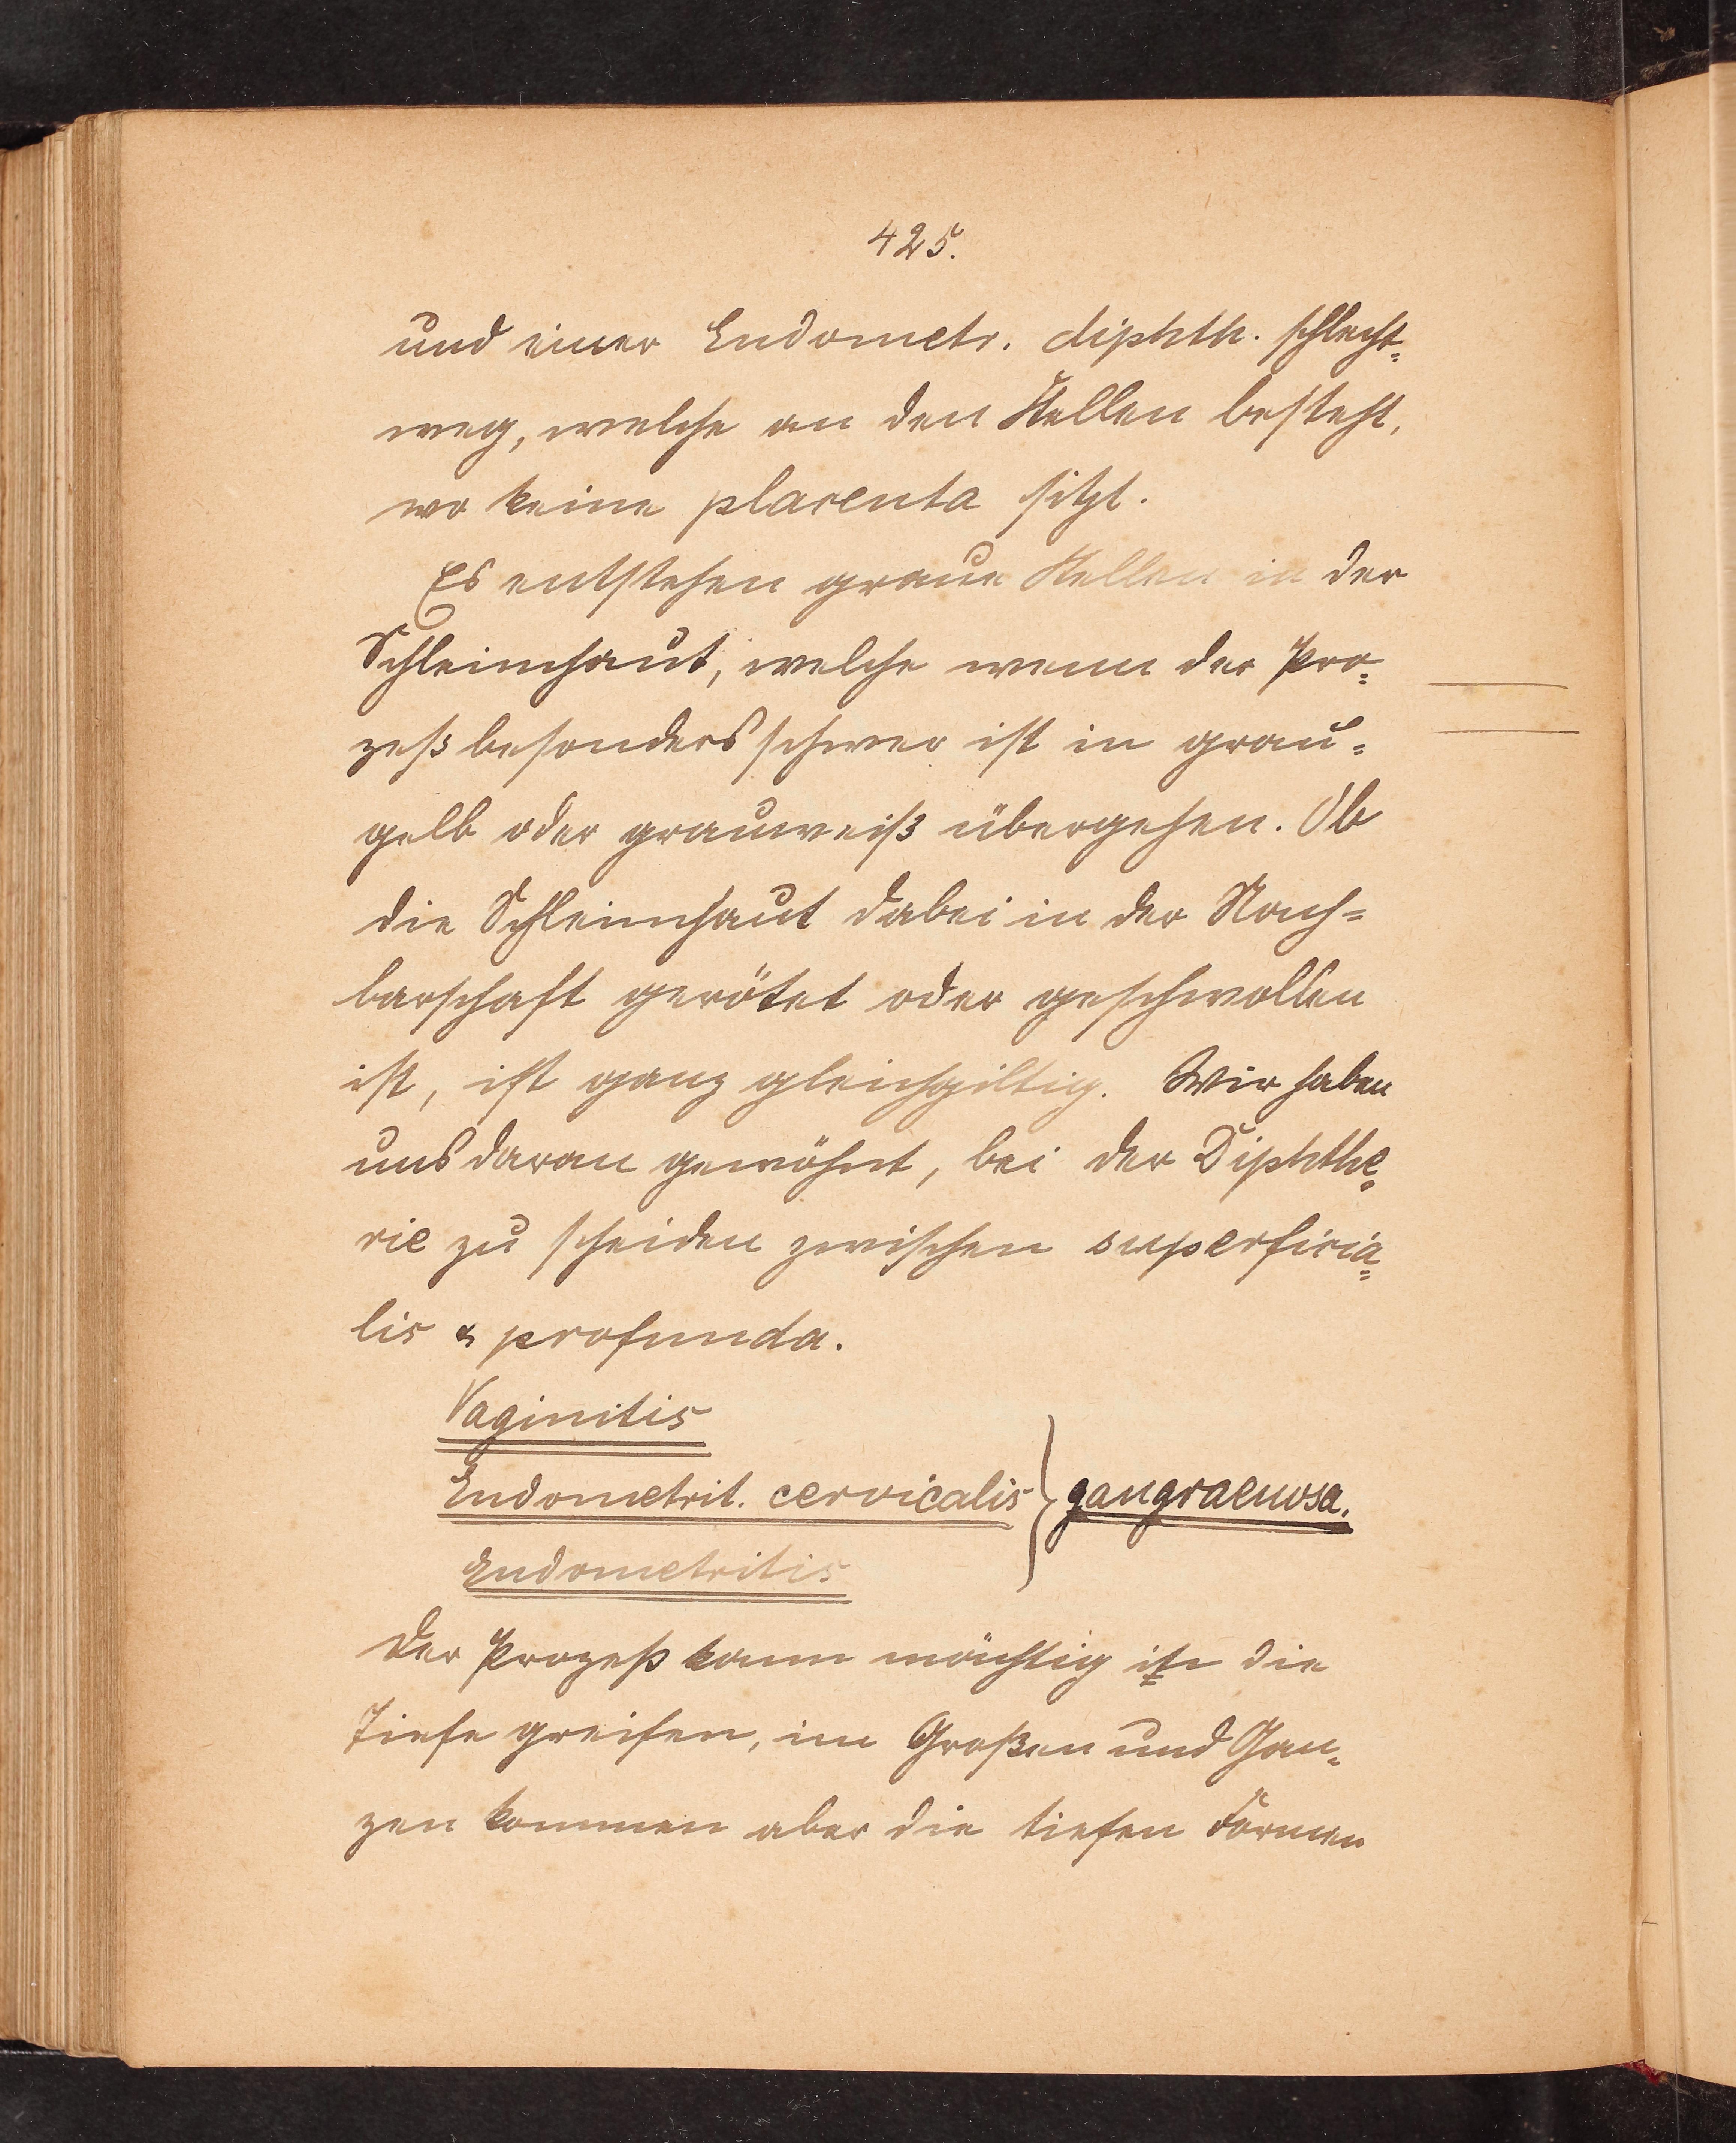 425.
und einer Endometr. diphth. schlecht=
weg, welche an den Stellen besteht,
wo keine placenta sitzt.
Es entstehen graue Stellen in der
Schleimhaut, welche wenn der Pro=
zeß besonders schwer ist in grau=
gelb oder grauweiß übergehen. Ob
die Schleimhaut dabei in der Nach=
barschaft gerötet oder geschwollen
ist, ist ganz gleichgiltig. Wir haben
uns daran gewöhnt, bei der Diphthe=
rie zu scheiden zwischen superficia=
lis & profunda.
Vaginitis
Endometrit. cervicalis } gangraenosa.
Endometritis
Der Prozeß kann mächtig in die
Tiefe greifen, im Großen und Gan=
zen kommen aber die tiefen Formen